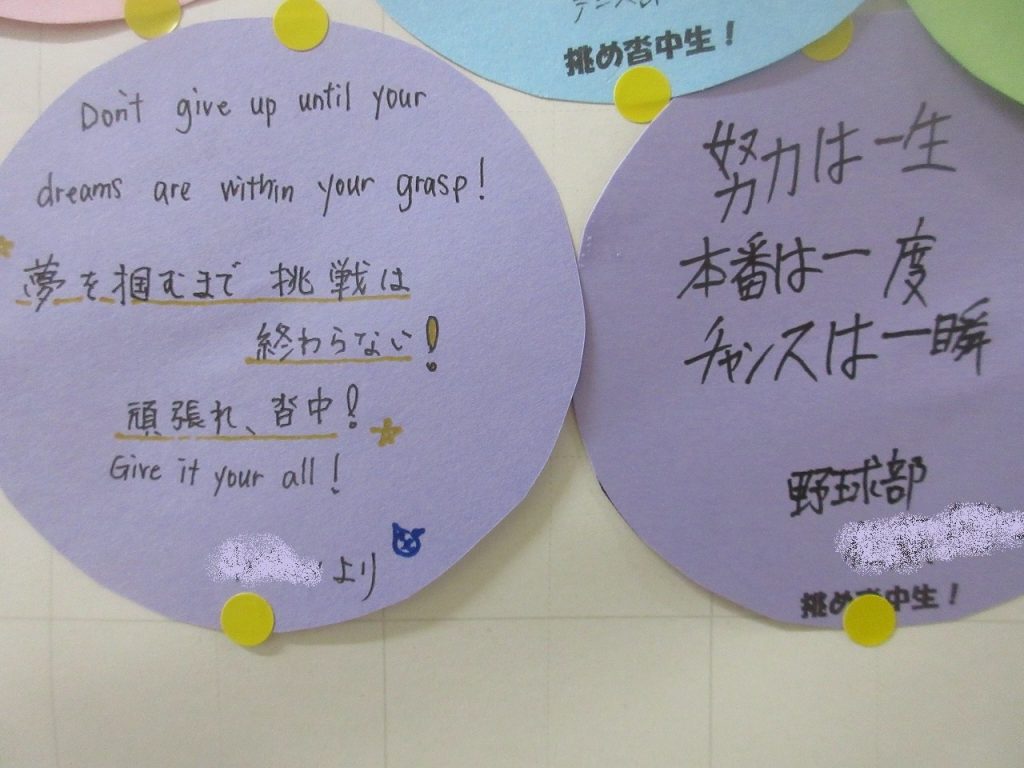 Don't give up until your
dreams are within your grasp!
夢を掴むまで 挑戦は
終わらない!
頑張れ、沓中!
Give it your all!
より
挑め沓中生!
努力は一生
本番は一度
チャンスは一瞬
野球部
挑め沓中生!